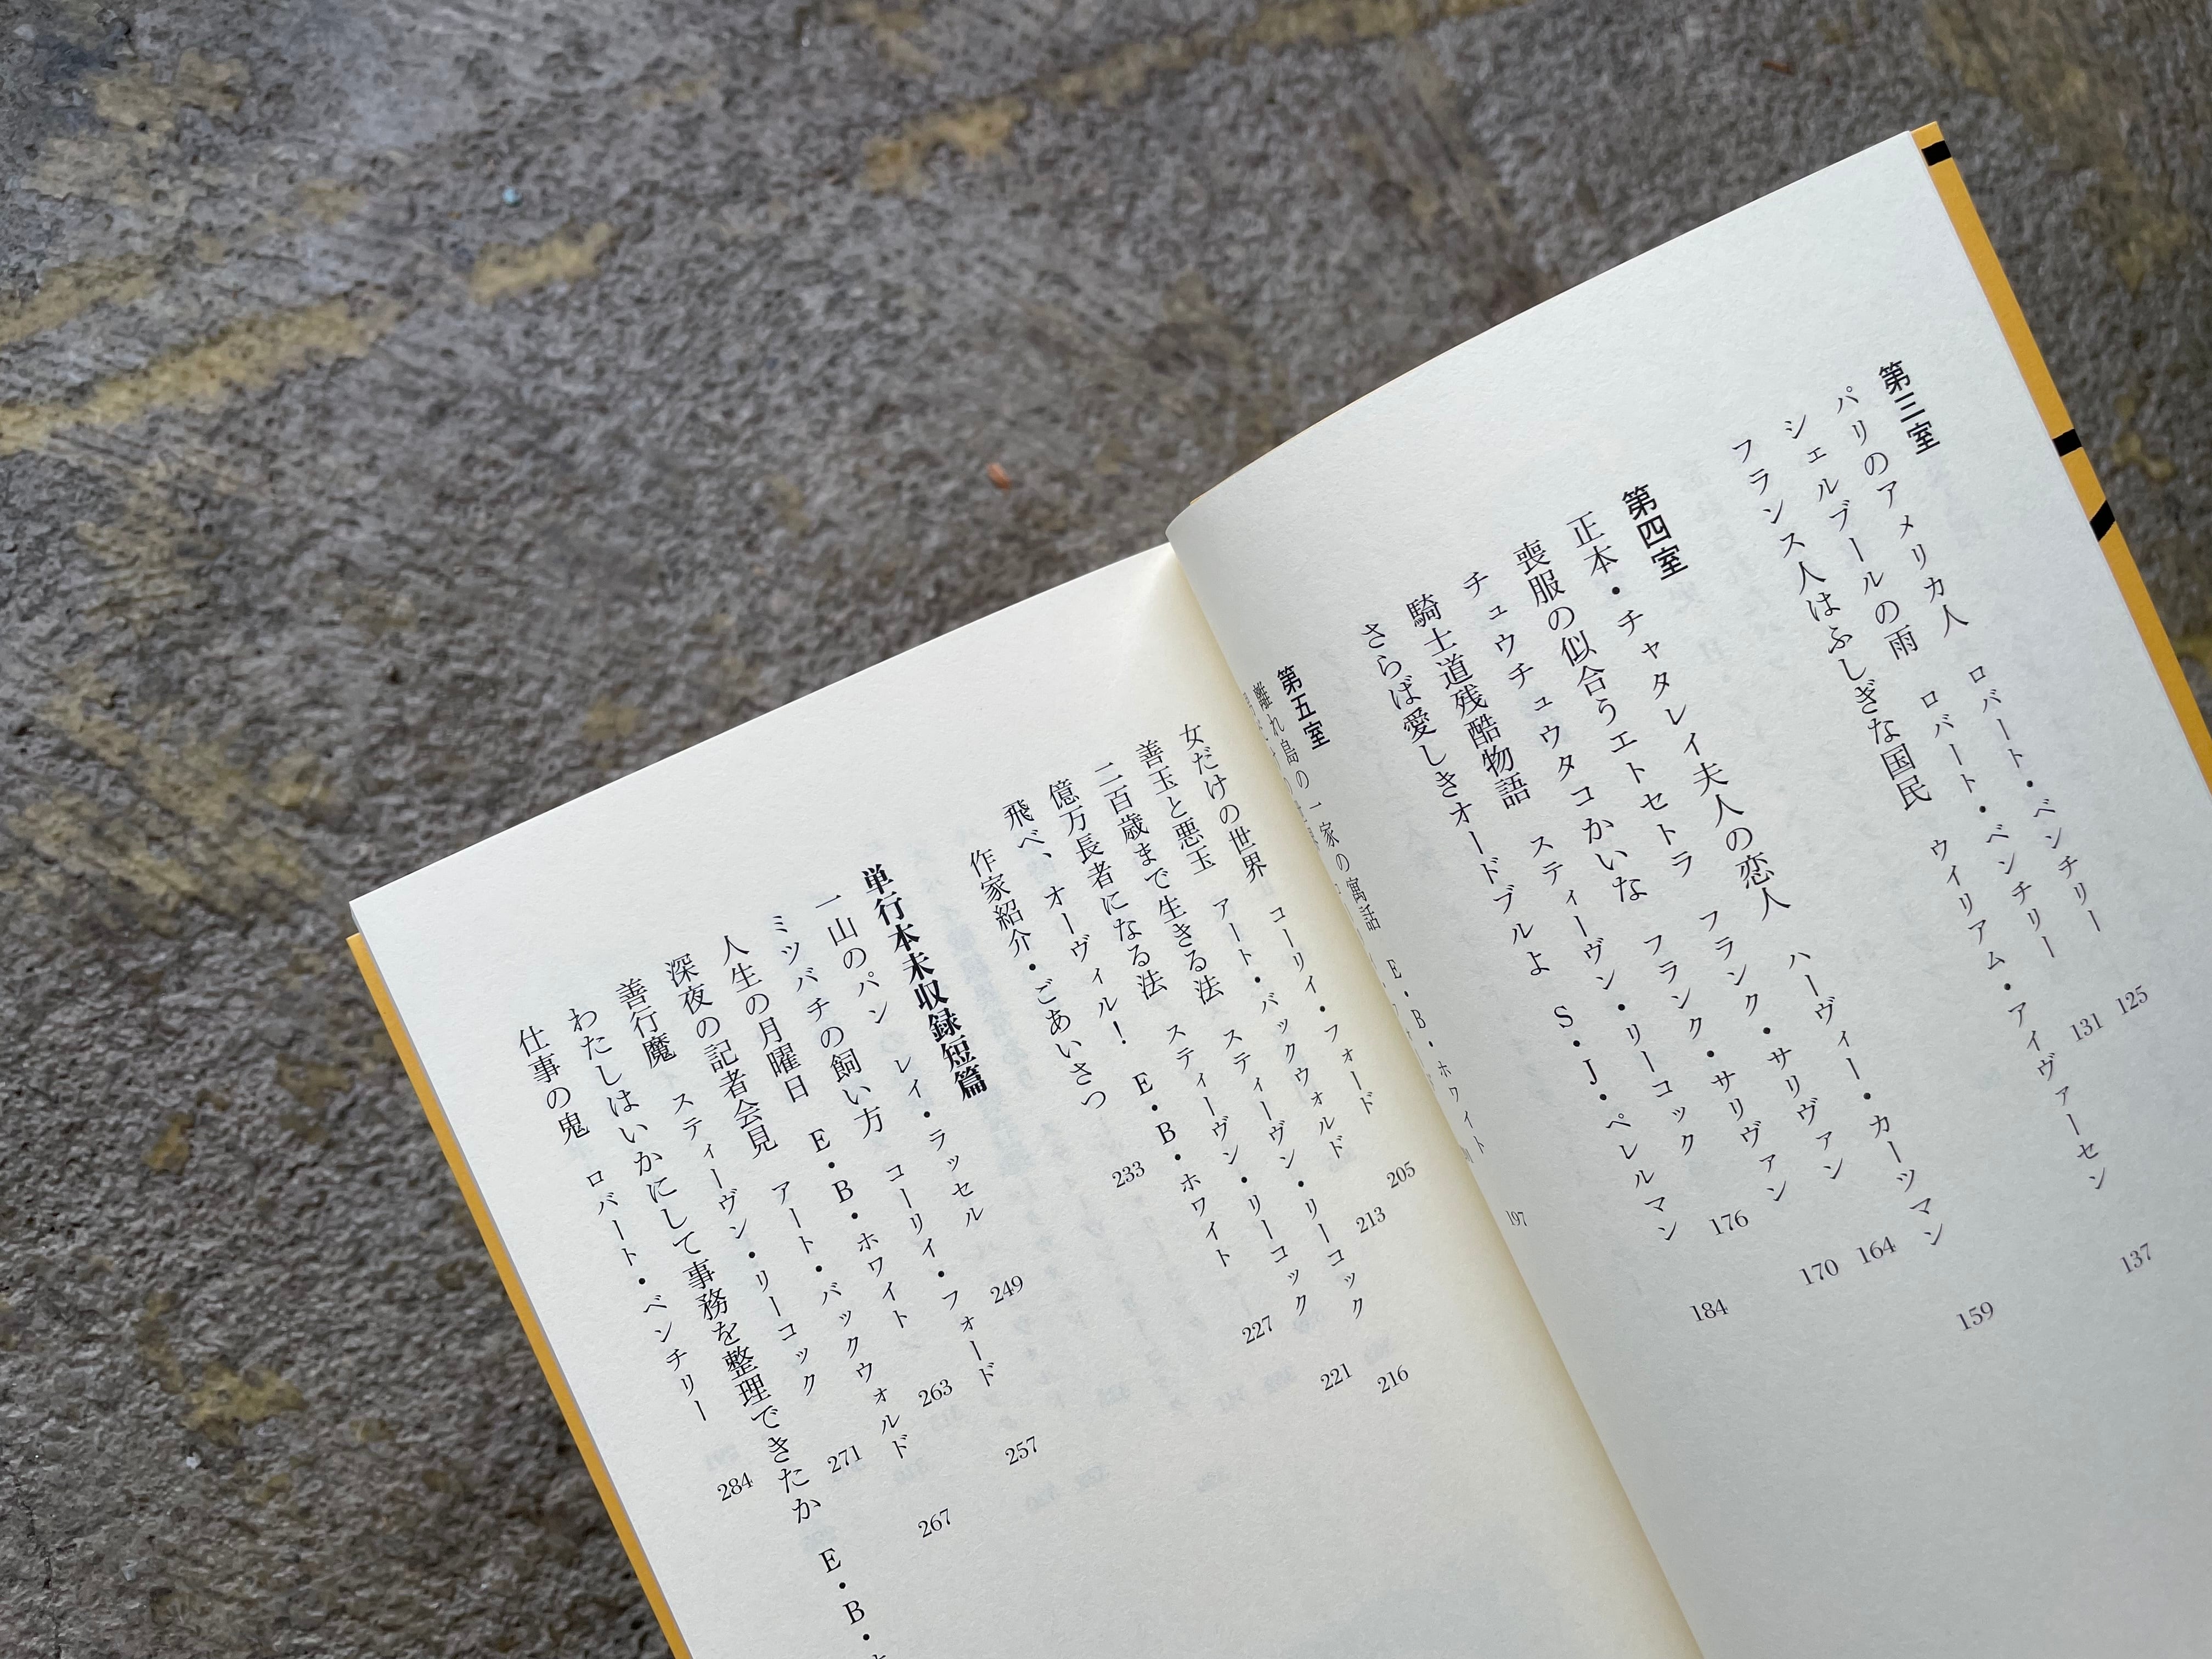 第三室
パリのアメリカ人　ロバート・ベンチリー　125
シェルブールの雨　ロバート・ベンチリー　131
フランス人はふしぎな国民　ウイリアム・アイヴァーセン　137
第四室
正本・チャタレイ夫人の恋人　ハーヴィー・カーツマン　159
喪服の似合うエトセトラ　フランク・サリヴァン　164
チュウチュウタコかいな　フランク・サリヴァン　170
騎士道残酷物語　スティーヴン・リーコック　176
さらば愛しきオードブルよ　S・J・ペレルマン　184
第五室
離れ島の一家の寓話　E・B・ホワイト　197
女だけの世界　コーリイ・フォード　205
善玉と悪玉　アート・バックウォルド　213
二百歳まで生きる法　スティーヴン・リーコック　216
億万長者になる法　スティーヴン・リーコック　221
飛べ、オーヴィル！　E・B・ホワイト　227
作家紹介・ごあいさつ　233
単行本未収録短篇
一山のパン　レイ・ラッセル　249
ミツバチの飼い方　コーリイ・フォード　257
人生の月曜日　E・B・ホワイト　263
深夜の記者会見　アート・バックウォルド　267
善行魔　スティーヴン・リーコック　271
わたしはいかにして事務を整理できたか　E・B・
仕事の鬼　ロバート・ベンチリー　284